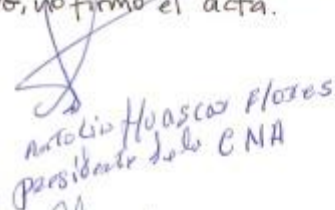 o, no firmo el acta.
Antolin Huascar Flores
Presidente de la CNA